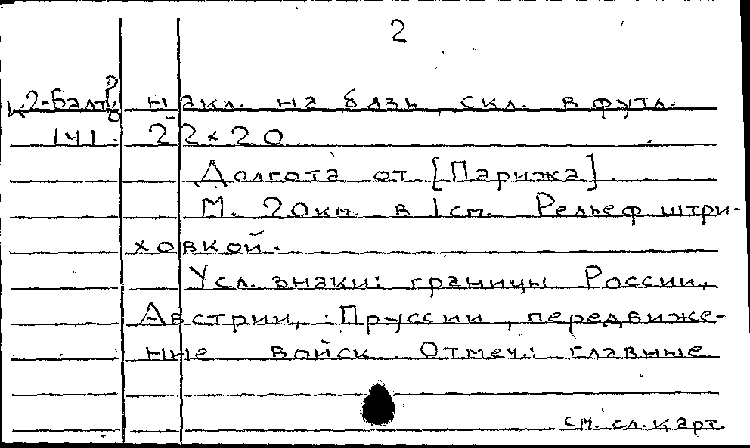 2
К2-Балт. накл. на бязь, скл. в футл.
141 22×20
Долгота от [Парижа].
М. 20км в 1см. Рельеф штри-
ховкой.
Усл. знаки: границы России,
Австрии, Пруссии, передвиже-
ние войск. Отмеч.: главные
см. сл. карт.